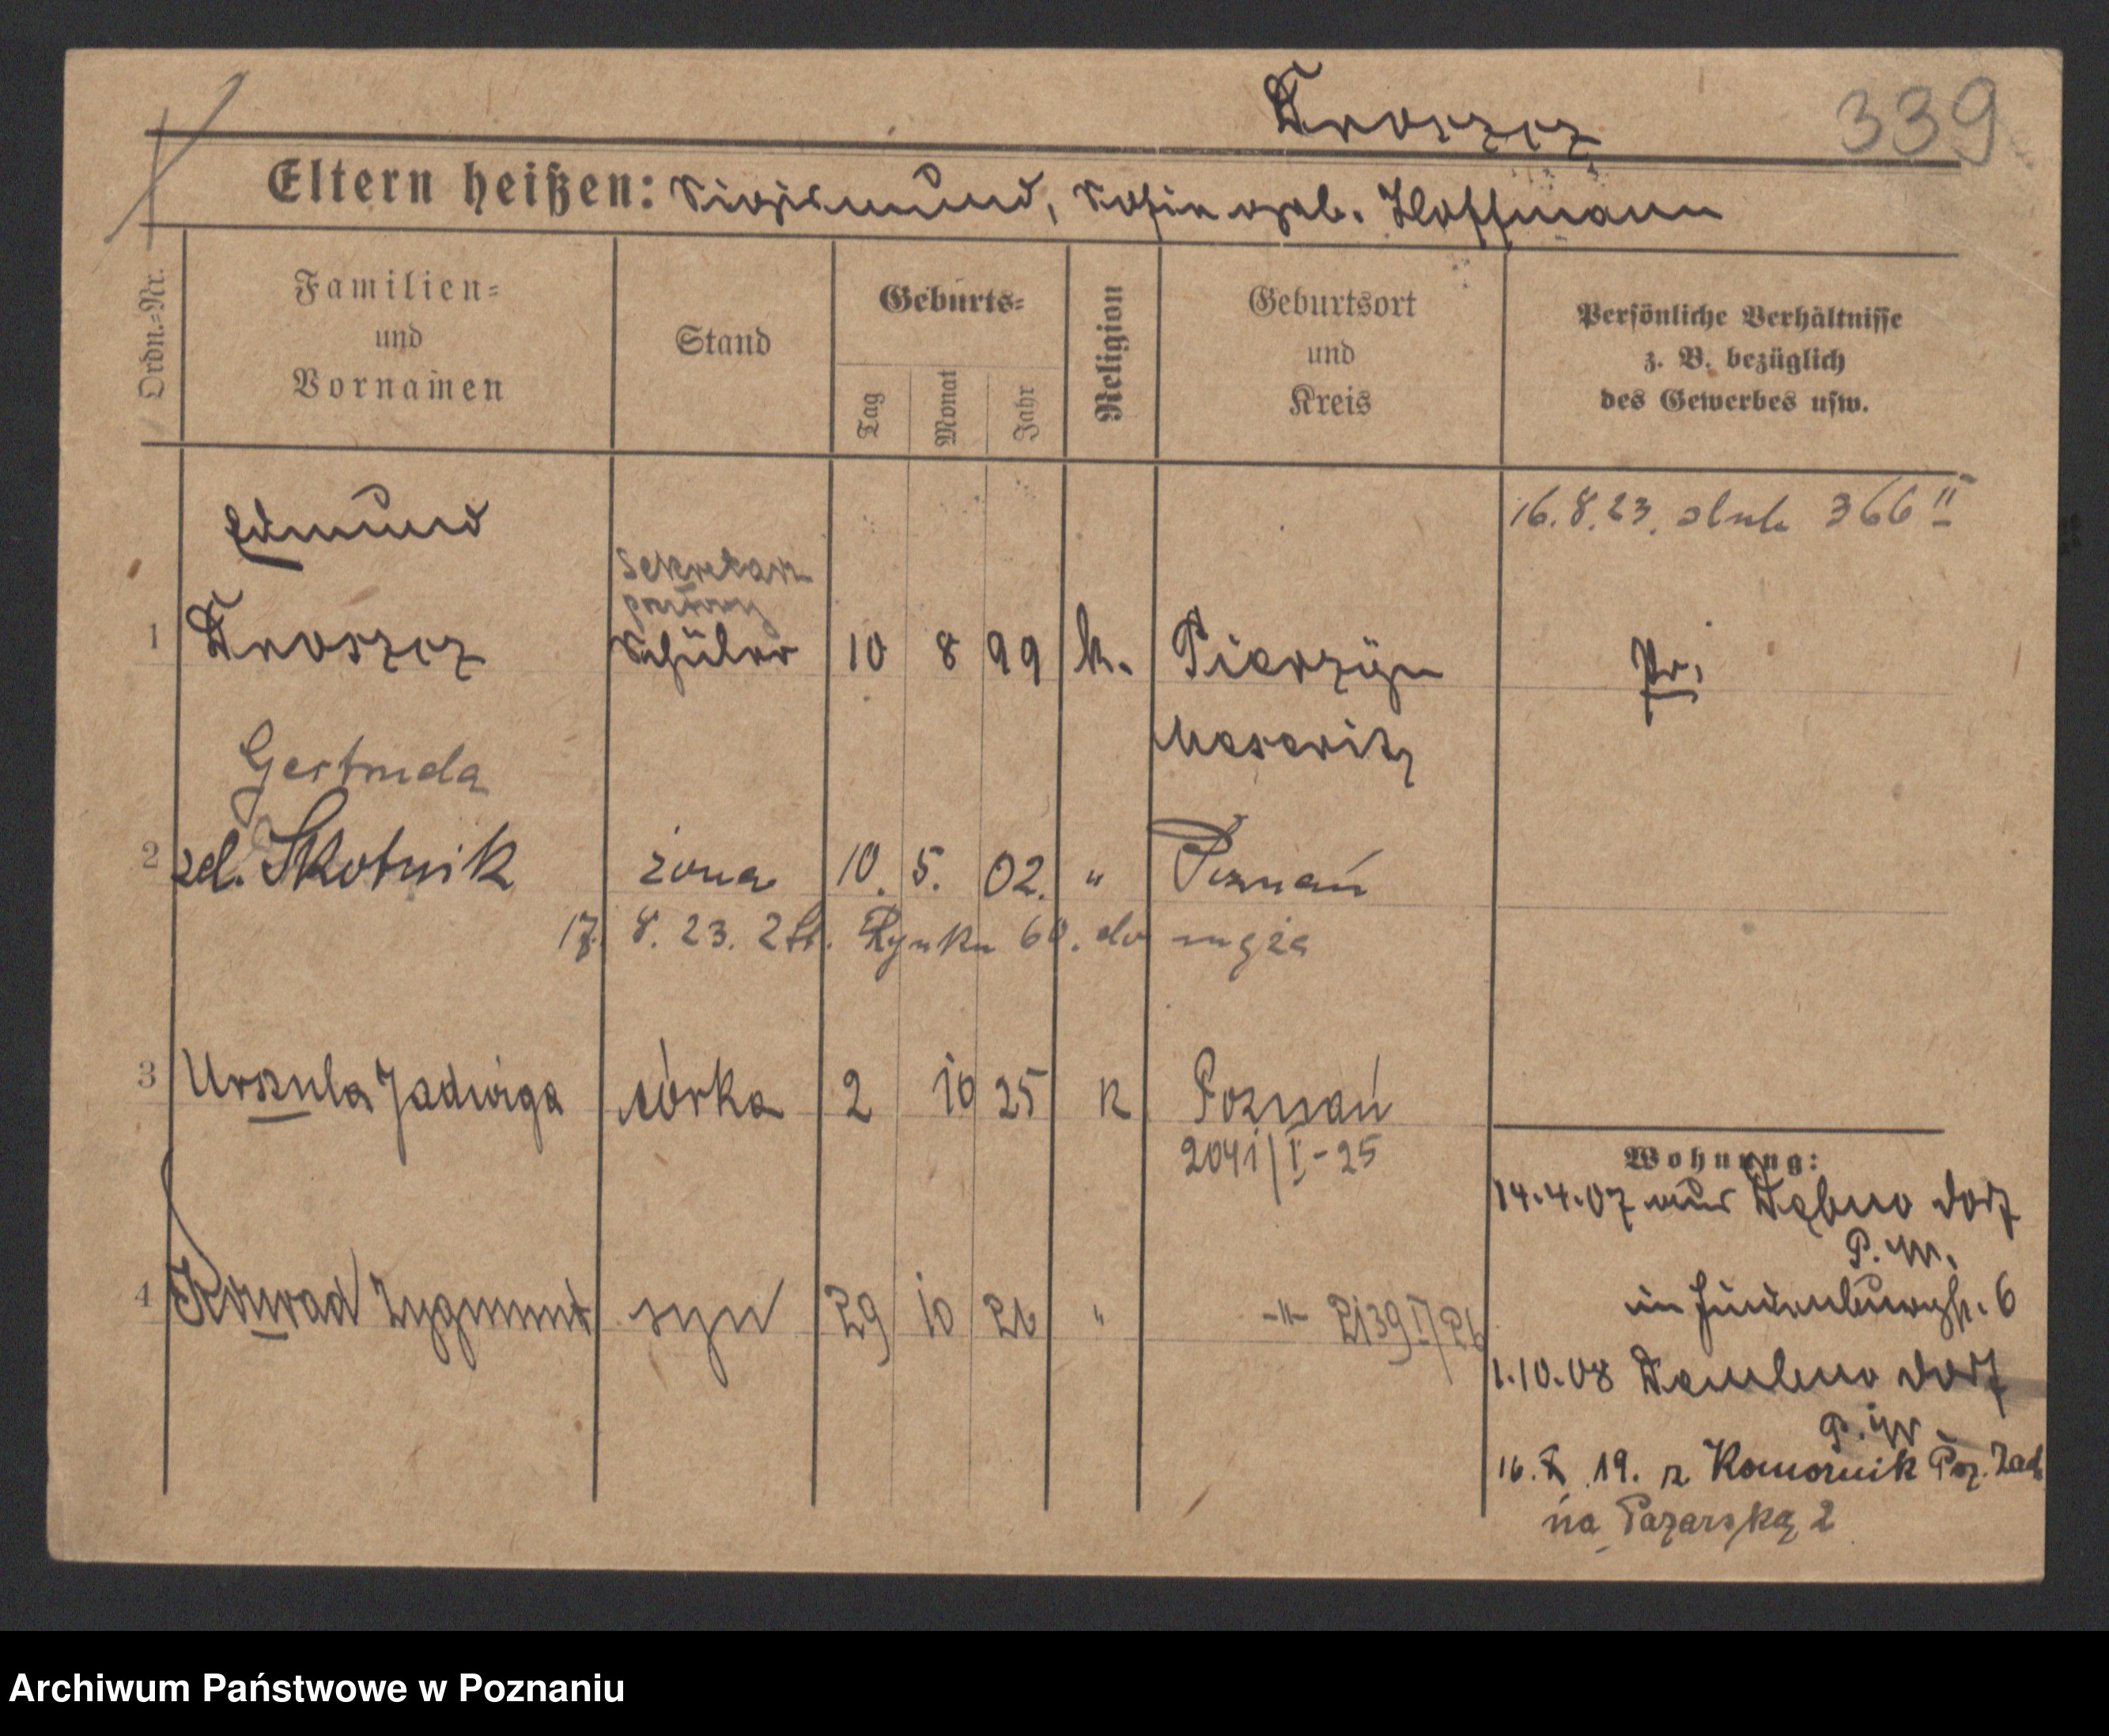 339
Eltern heißen: Sigismund, Sofia geb. Hoffmann
Ordn.=Nr.
Familien=
und
Vornamen
Stand
Geburts=
Tag
Monat
Jahr
Religion
Geburtsort
und
Kreis
Persönliche Verhältnisse
z. B. bezüglich
des Gewerbes usw.
16. 8. 23. 366 II
Edmund
1 Schüler 10 8 99 k. Pr.
Meseritz
Gertruda
2 zd. Skotnik żona 10. 5. 02. " Poznań
17. 8. 23. Rynku 60. do męża
3 Urszula Jadwiga córka 2 10 25 k Poznań
2041/I-25
Wohnung:
14.4.07 aus Dąbno Dorf
P. W.
4 Konrad Zygmunt syn 29 10 26 " -"- 2139 I/26
6
1.10.08 Dembno Dorf
P. W
16. X 19. z Komornik Poz. Zach
na 2
Archiwum Państwowe w Poznaniu